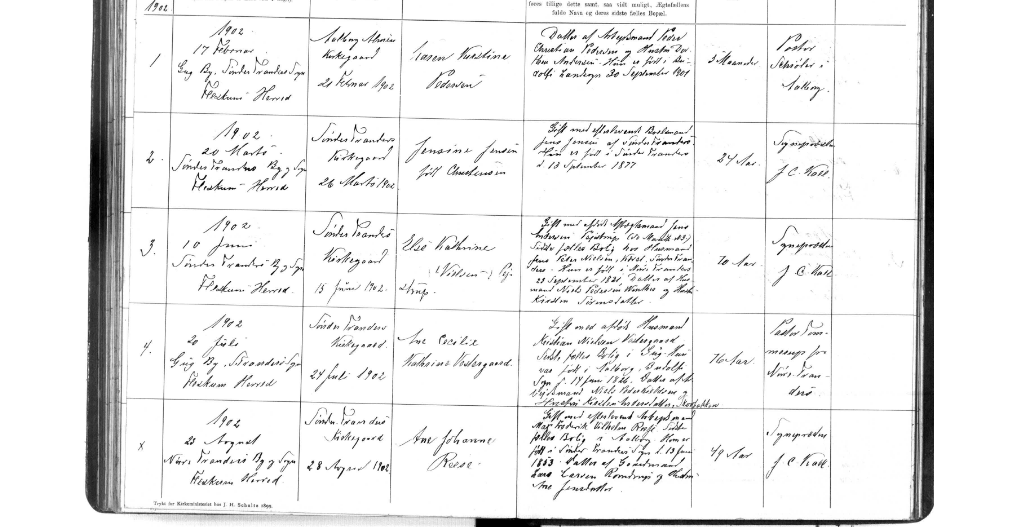 1902.
feres tillige dette samt, saa vidt muligt, Ægtefællens
fulde Navn og deres sidste fælles Bopæl.
1
1902
17 Februar
Gug By, Sønder Tranders Sogn
Fleskum Herred
Aalborg Almen
Kirkegaard
21 Februar 1902
Karen Kirstine
Pedersen
Datter af Arbejdsmand Peder
Christian Pedersen og Hustru Dor-
thea Andersen. Hun er født i Bu-
dolfi Landsogn 30 September 1901
5 Maaneder
Pastor
Schrøder i
Aalborg.
2.
1902.
20 Marts
Sønder Tranders By og Sogn
Fleskum Herred
Sønder Tranders
Kirkegaard
26 Marts 1902
Jensine Jensen
født Christensen
Gift med efterlevende
Jens Jensen af Sønder Tranders.
Hun er født i Sønder Tranders
d 13 September 1877
24 Aar.
Sogneprovsten
J C. Kall.
3.
1902
10 Juni
Sønder Tranders By og Sogn
Fleskum Herred.
Sønder Tranders
Kirkegaard
15 Juni 1902.
Else Kathrine
Nielsen
Gift med afdøde Aftægtsmand Jens
Sidste fælles Bolig hos Husmand
Jens Peder Nielsen, Sønder Tran-
ders. Hun er født i Nørre Tranders
23 September 1831. Datter af Hus-
mand Niels Pedersen og Hustru
Kirsten
70 Aar.
Sogneprovsten
J C. Kall
4.
1902
20 Juli
Gug By, S Tranders Sogn
Fleskum Herred
Sønder Tranders
Kirkegaard.
24 Juli 1902
Ane Cecilie
Kathrine Vestergaard.
Gift med afdøde Husmand
Kristian Nielsen Vestergaard
Sidste fælles Bolig i Gug. Hun
var født i Aalborg, Budolfi
Sogn d. 17 Juni 1826. Datter af
76 Aar.
Pastor
for
Nørre Tran-
ders
x
1902
23 August
Nørre Tranders By og Sogn
Fleskum Herred
Sønder Tranders
Kirkegaard
28 August 1902
Ane Johanne
Reese.
Gift med efterlevende Arbejdsmand
Frederik Vilhelm Reese. Sidste
fælles Bolig i Aalborg. Hun er
født i Sønder Tranders Sogn d. 13 Juni
1853. Datter af
Lars Larsen og Hustru
Ane Jensdatter
49 Aar
Sogneprovsten
J C Kall.
Trykt for Kirkeministeriet hos J. H. Schultz 1899.